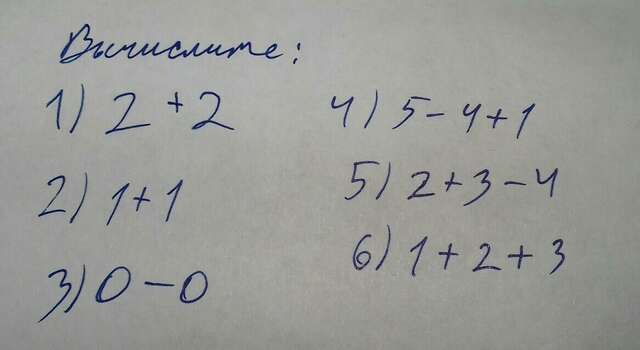 Вычислите:
1) 2 + 2
2) 1 + 1
3) 0 - 0
4) 5 - 4 + 1
5) 2 + 3 - 4
6) 1 + 2 + 3